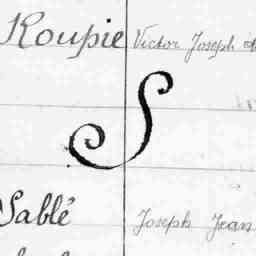 Roupie Victor Joseph
S
Sablé Joseph Jean